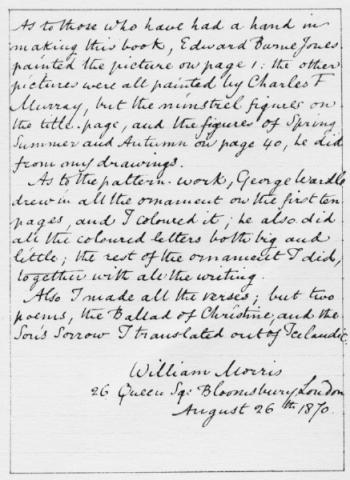 As to those who have had a hand in
making this book, Edward Burne Jones
painted the picture on page 1: the other
pictures were all painted by Charles F
Murray, but the minstrel figures on
the title-page, and the figures of Spring
Summer and Autumn on page 40, he did
from my drawings.
As to the pattern-work, George Wardle
drew in all the ornament on the first ten
pages, and I coloured it; he also did
all the coloured letters both big and
little; the rest of the ornament I did,
together with all the writing.
Also I made all the verses; but two
poems, the Ballad of Christine, and the
Son's Sorrow I translated out of Icelandic.
William Morris
26 Queen Sq: Bloomsbury, London
August 26th 1870.